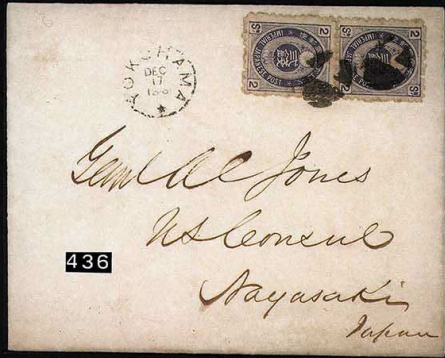 YOKOHAMA
DEC
17
2 Sn 2
IMPERIAL JAPANESE POST
2 Sn 2
IMPERIAL JAPANESE POST
Genl A C Jones
US Consul
436
Nagasaki
Japan